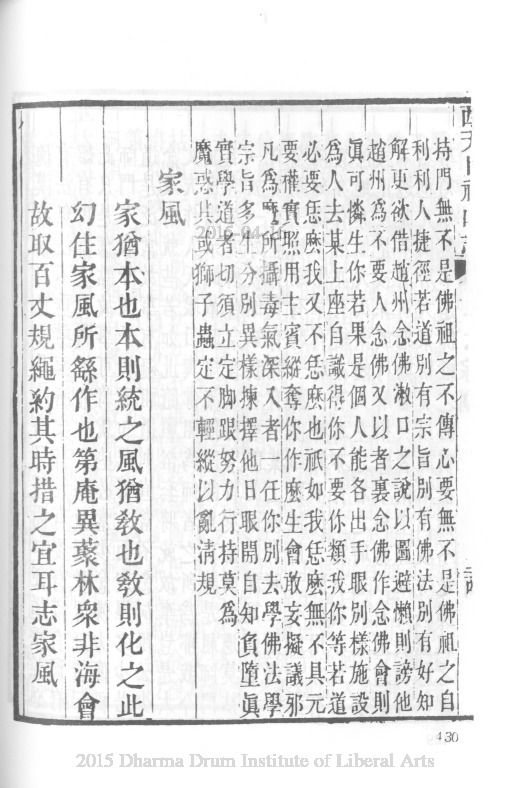 持門無不是佛祖之不傳心要無不是佛祖之自
利利人捷徑若道別有宗旨別有佛法別有好知
解更欲借趙州念佛漱口之說以圖避懶則謗他
趙州為不要人念佛又以者裏念佛作念佛會則
眞可憐生你若果是個人能各出手眼別樣施設
為人去某上座自識得你不要你類我你等若道
必要恁麽我又不恁麽也祇如我恁麽無不具元
要權實照用主賓縱奪你作麽生會敢妄擬議邪
凡為魔所攝毒氣深入者一任你別去學佛法學
宗旨多生分別異樣揀擇他日眼開自知負墮眞
實學道者切須立定脚跟努力行持莫為
魔惑其或獅子蟲定不輕縱以亂清規
家風
家猶本也本則統之風猶教也教則化之此
幻住家風所繇作也第庵異藂林衆非海會
故取百丈規繩約其時措之宜耳志家風
2016-04-10
430
2015 Dharma Drum Institute of Liberal Arts